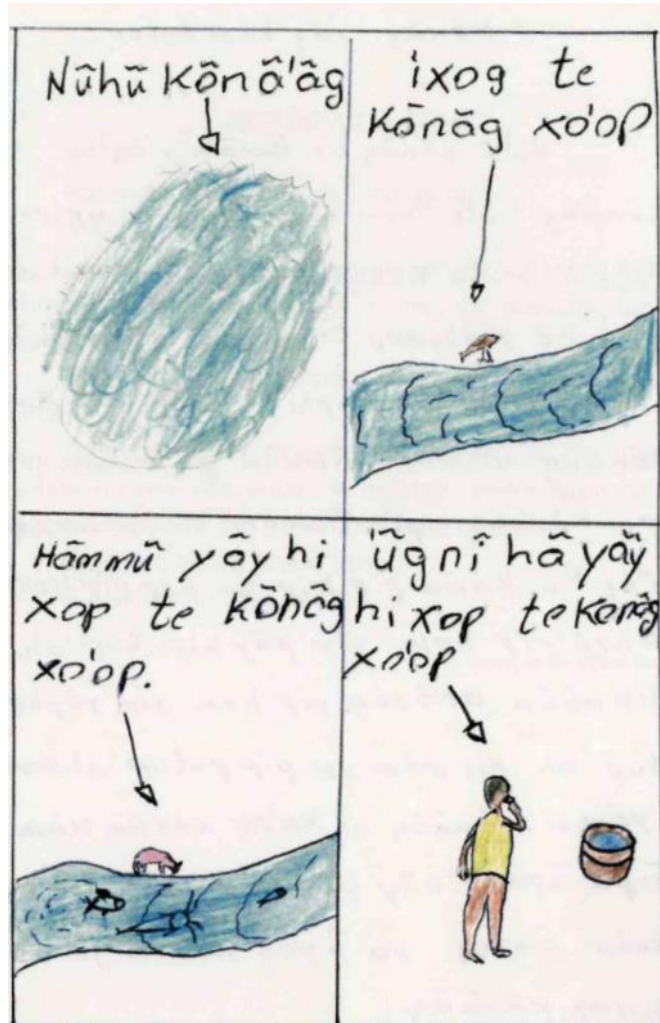 Nũhũ Kõnã'ãg
ixog te
Kõnãg xo'op
Hãmmũ yãy hi
xop te kõnãg
xo'op.
ũgnĩ hã yãy
hi xop te Kõnãg
xoop